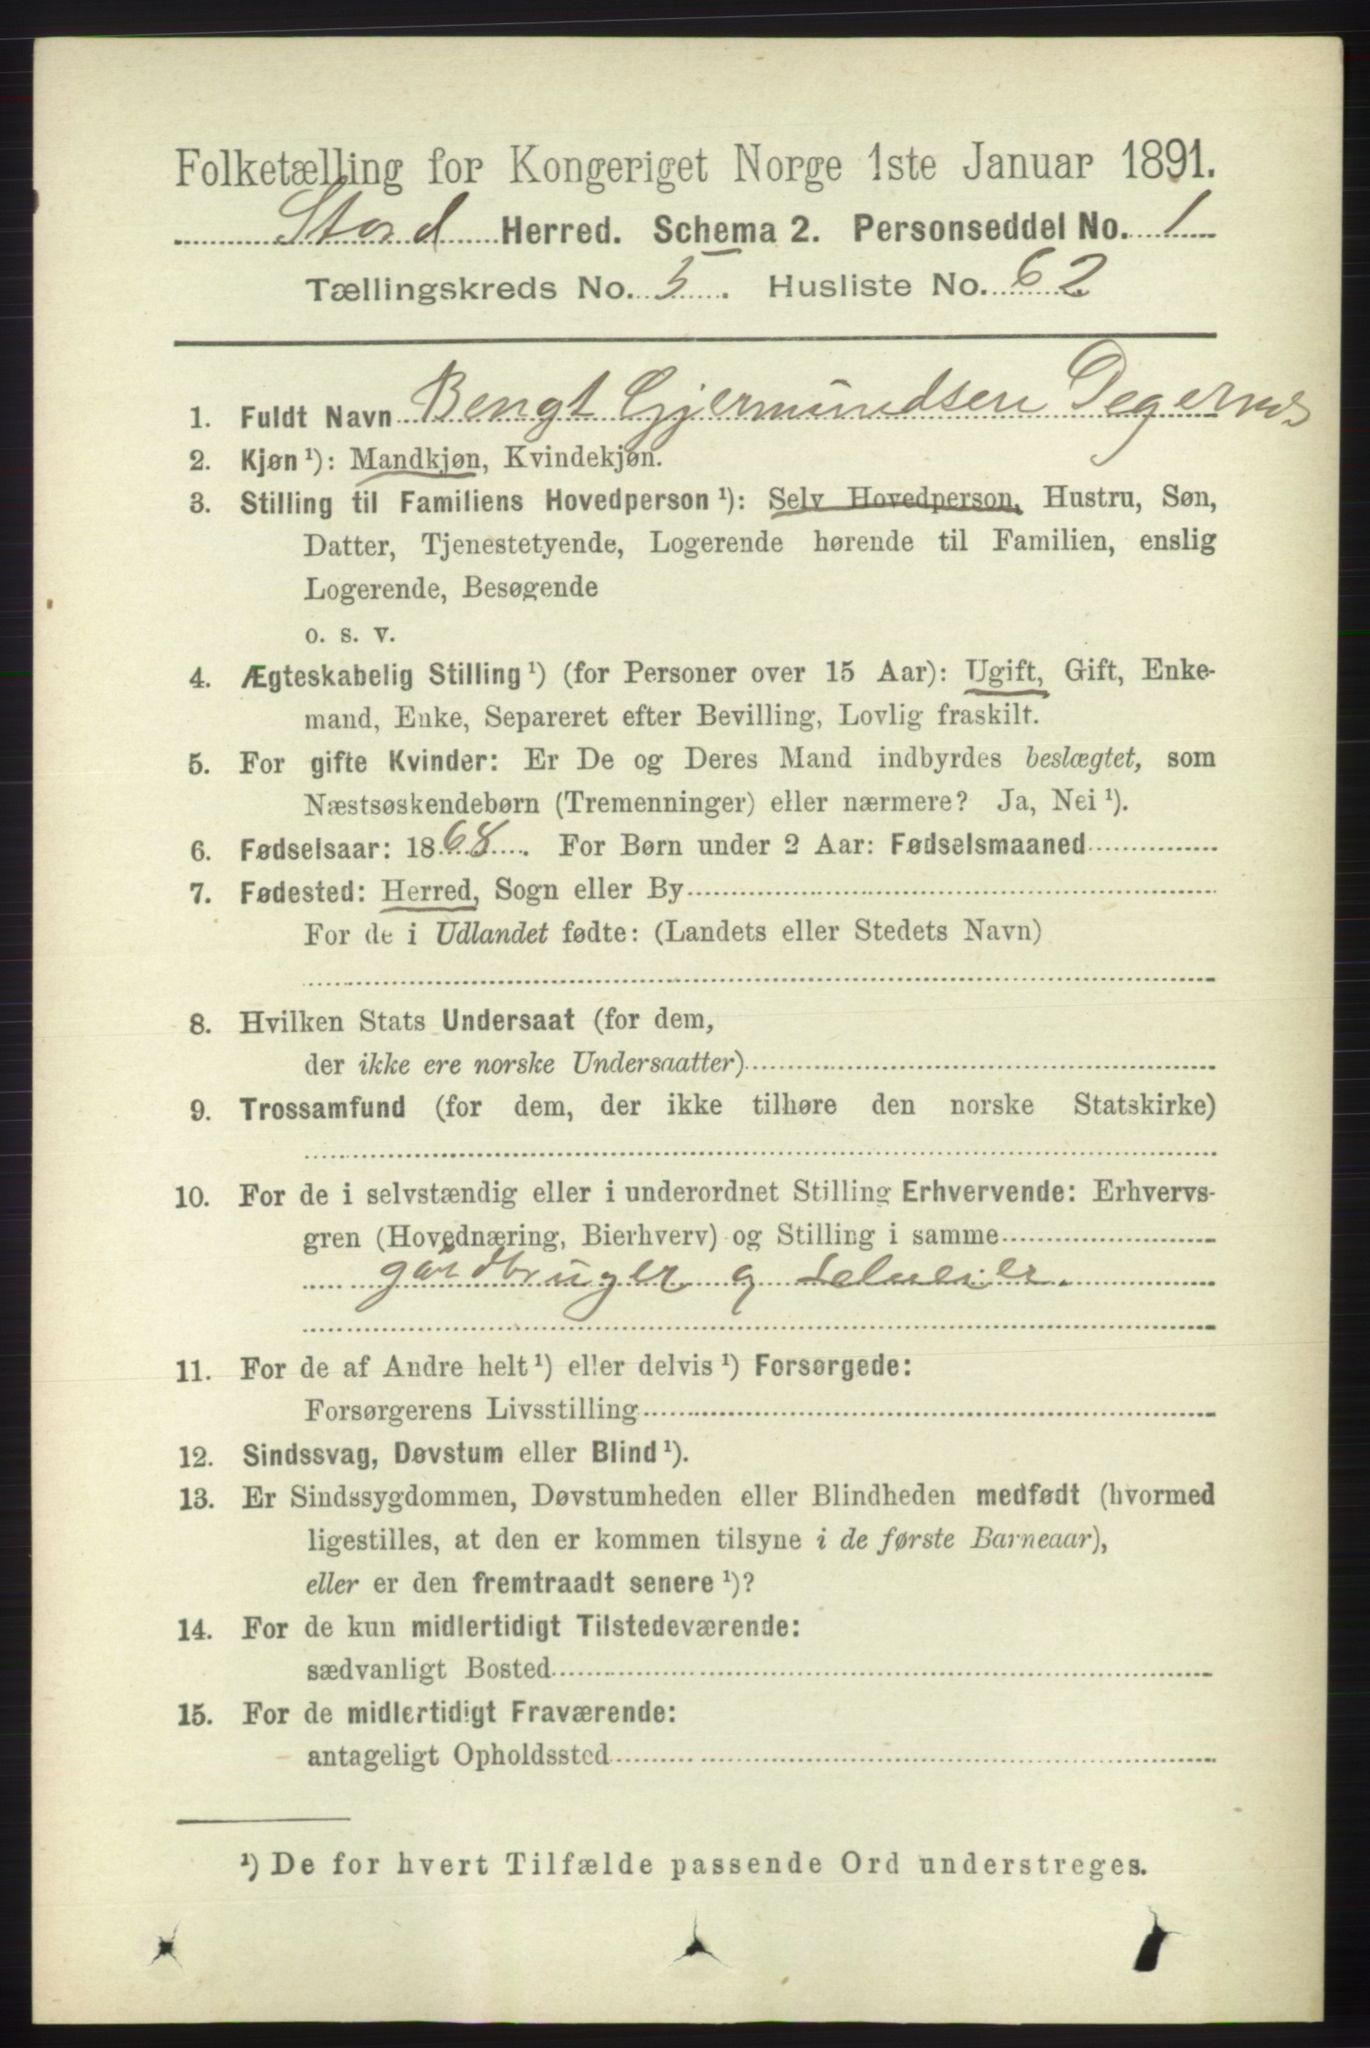 Folketælling for Kongeriget Norge 1ste Januar 1891.
Stord Herred. Schema 2. Personseddel No. 1
Tællingskreds No. 5. Husliste No. 62
1. Fuldt Navn Bengt Gjermundsen Degernes
2. Kjøn ¹): Mandkjøn, Kvindekjøn.
3. Stilling til Familiens Hovedperson ¹): Selv Hovedperson, Hustru, Søn,
Datter, Tjenestetyende, Logerende hørende til Familien, enslig
Logerende, Besøgende
o. s. v.
4. Ægteskabelig Stilling ¹) (for Personer over 15 Aar): Ugift, Gift, Enke-
mand, Enke, Separeret efter Bevilling, Lovlig fraskilt.
5. For gifte Kvinder: Er De og Deres Mand indbyrdes beslægtet, som
Næstsøskendebørn (Tremenninger) eller nærmere? Ja, Nei ¹).
6. Fødselsaar: 1868. For Børn under 2 Aar: Fødselsmaaned
7. Fødested: Herred, Sogn eller By
For de i Udlandet fødte: (Landets eller Stedets Navn)
8. Hvilken Stats Undersaat (for dem,
der ikke ere norske Undersaatter)
9. Trossamfund (for dem, der ikke tilhøre den norske Statskirke)
10. For de i selvstændig eller i underordnet Stilling Erhvervende: Erhvervs-
gren (Hovednæring, Bierhverv) og Stilling i samme
gårdbruger og Selveier.
11. For de af Andre helt ¹) eller delvis ¹) Forsørgede:
Forsørgerens Livsstilling
12. Sindssvag, Døvstum eller Blind ¹).
13. Er Sindssygdommen, Døvstumheden eller Blindheden medfødt (hvormed
ligestilles, at den er kommen tilsyne i de første Barneaar),
eller er den fremtraadt senere ¹)?
14. For de kun midlertidigt Tilstedeværende:
sædvanligt Bosted
15. For de midlertidigt Fraværende:
antageligt Opholdssted
¹) De for hvert Tilfælde passende Ord understreges.